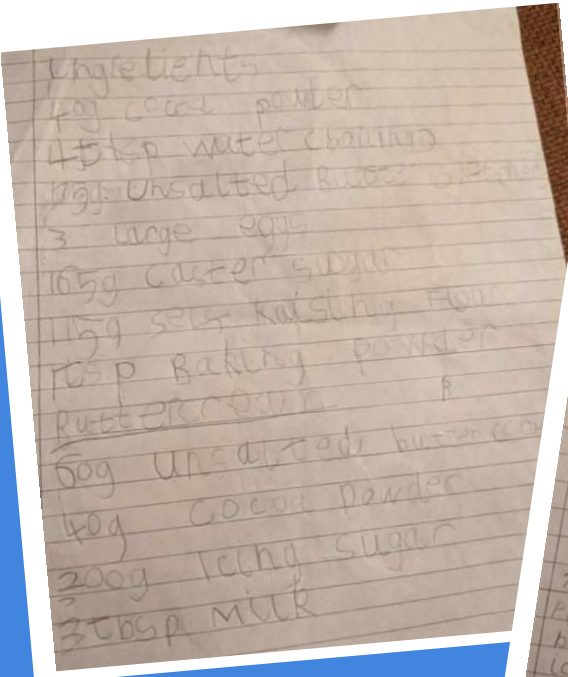 Ingretients
40g cocoa powder
4tbsp water (boiling)
Unsalted
3 large eggs
165g Caster sugar
115g self Raising Flour
1tsp Baking powder
Buttercream
B
60g unsalted butter
40g cocoa powder
200g Icing sugar
3tbsp Milk